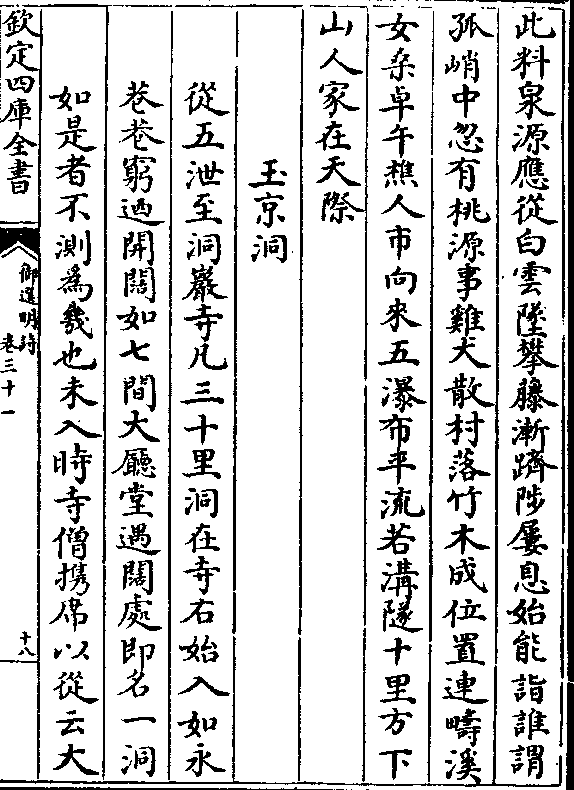 此料泉源應從白雲墜攀藤漸躋陟屢息始能詣誰謂
孤峭中忽有桃源事雞犬散村落竹木成位置連疇溪
女桒卓午樵人市向來五瀑布平流若溝隧十里方下
山人家在天際
玉京洞
從五泄至洞巖寺凡三十里洞在寺右始入如永
巷巷窮迺開闊如七間大廳堂遇闊處即名一洞
如是者不測為幾也未入時寺僧携席以從云大
欽定四庫全書
御選明詩
卷三十一
十八